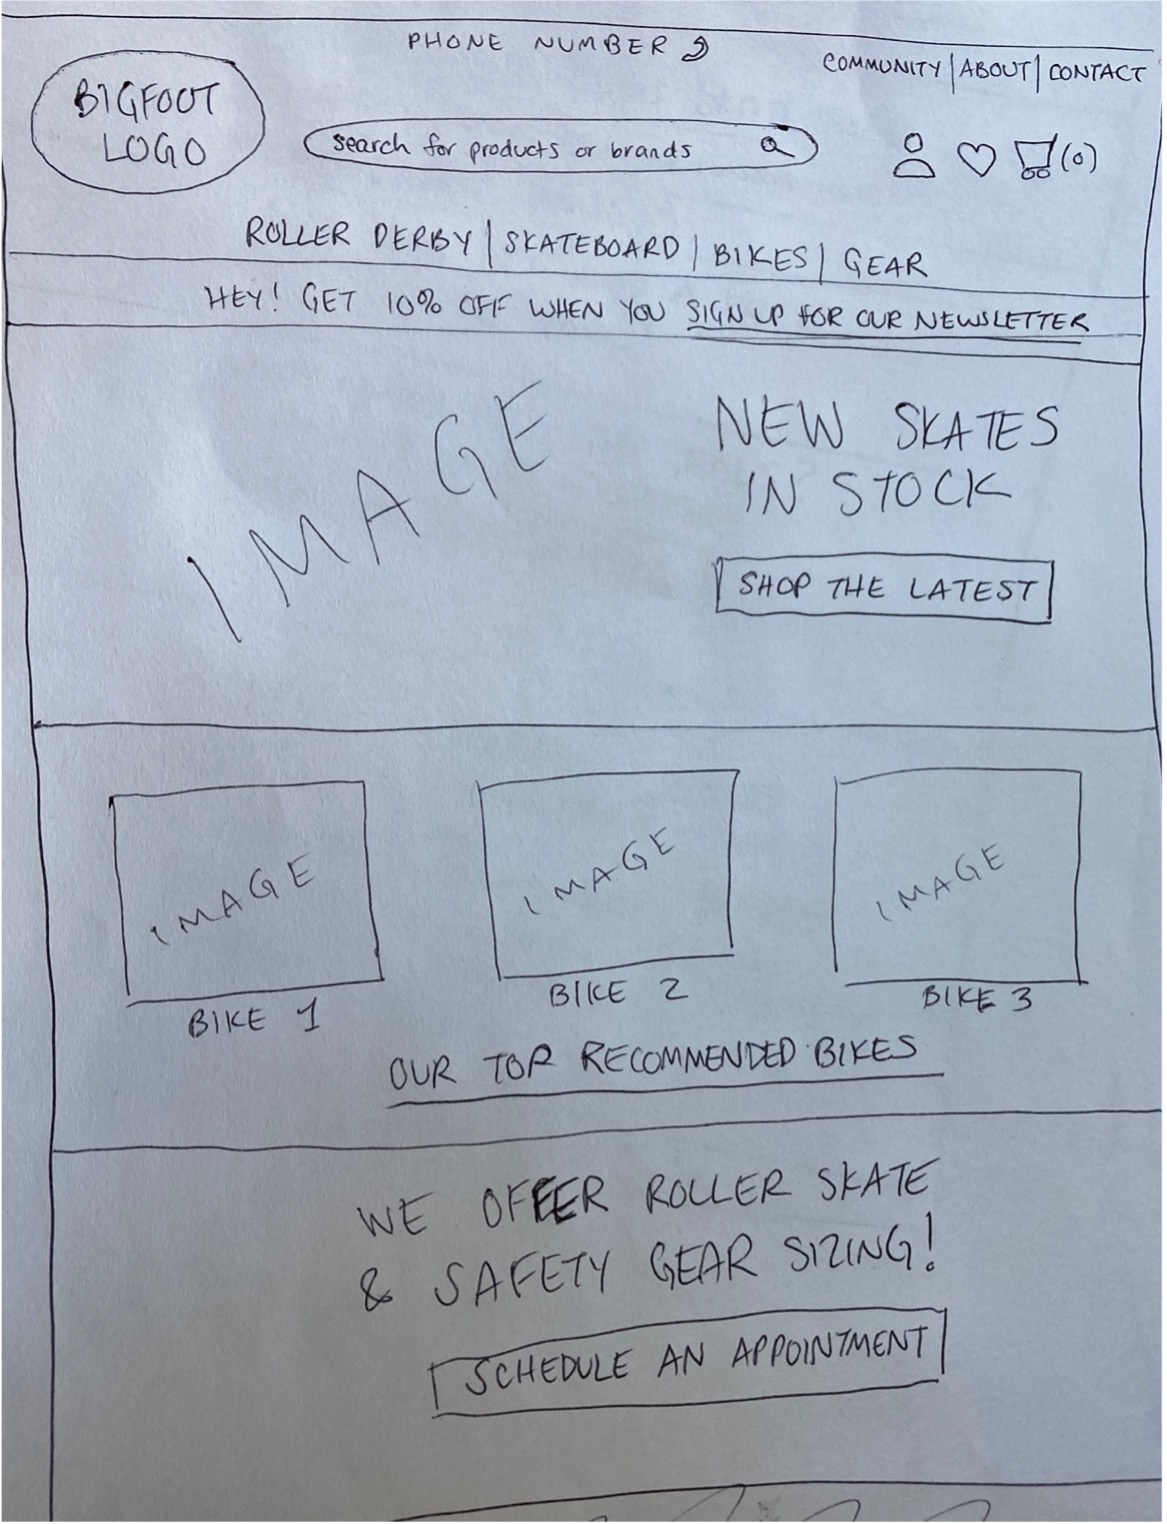 PHONE NUMBER
COMMUNITY | ABOUT | CONTACT
BIGFOOT
LOGO
search for products or brands
(0)
ROLLER DERBY | SKATEBOARD | BIKES | GEAR
HEY! GET 10% OFF WHEN YOU SIGN UP FOR OUR NEWSLETTER
IMAGE
NEW SKATES
IN STOCK
SHOP THE LATEST
IMAGE
IMAGE
IMAGE
BIKE 1
BIKE 2
BIKE 3
OUR TOP RECOMMENDED BIKES
WE OFFER ROLLER SKATE
& SAFETY GEAR SIZING!
SCHEDULE AN APPOINTMENT